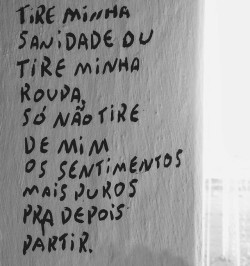 TIRE MINHA
SANIDADE OU
TIRE MINHA
ROUPA,
SÓ NÃO TIRE
DE MIM
OS SENTIMENTOS
MAIS PUROS
PRA DEPOIS
PARTIR.